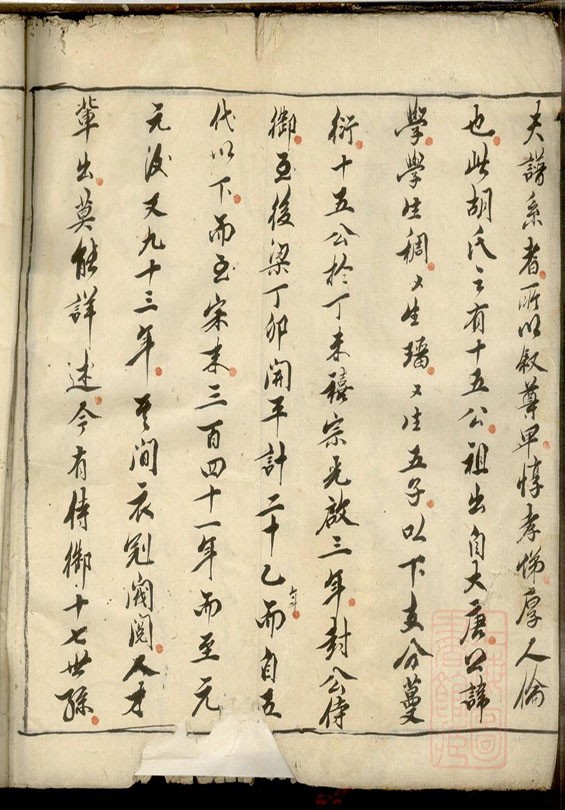 夫譜系者所以敘尊卑惇孝悌厚人倫
也此胡氏之有十五公祖出自大唐公諱
學學生稠々生璠々生五子以下支分蔓
衍十五公於丁未禧宗光啟三年封公侍
御至後梁丁卯開平計二十乙年而自五
代以下而至宋末三百四十一年而至元
元後又九十三年其間衣冠閥閱人才
輩出莫能詳述今有侍御十七世孫